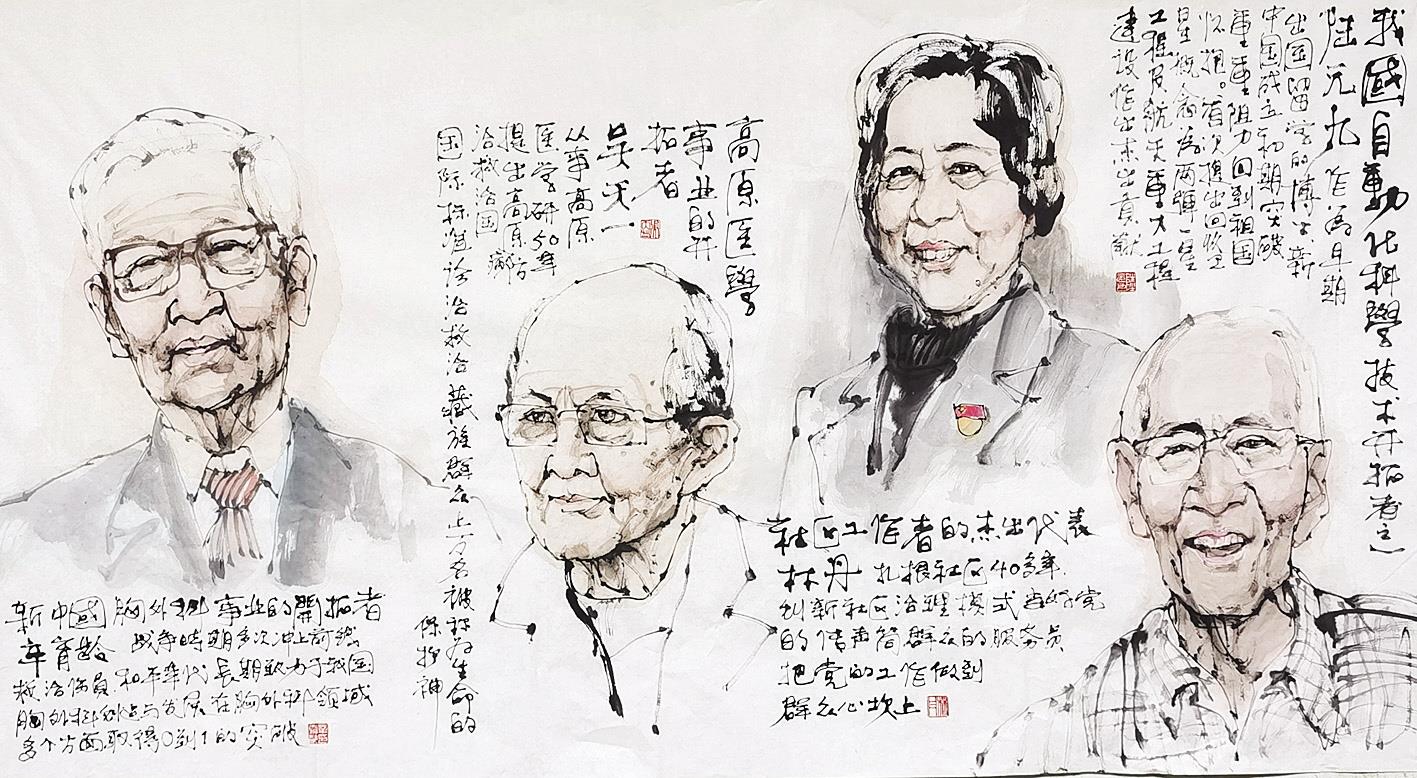 我國自動化科學技术开拓者之一
陆元九 作为早期
出国留学的博士新
中国成立初期突破
重重阻力回到祖国
怀抱。首次提出回收卫
星概念为两弹一星
工程及航天重大工程
建设作出杰出贡献
高原医學
事业的开
拓者
吴天一
从事高原
医学研50年
提出高原病防
治救治国
国际标准诊治救治藏族群众上万名被称为生命的
保护神
新中國胸外科事业的開拓者
辛育龄 战争時期多次冲上前线
救治伤员.和平年代長期致力于我国
胸外科创建与发展在胸外科领域
多个方面取得0到1的突破
社区工作者的杰出代表
林丹 扎根社区40多年
创新社区治理模式当好党
的传声筒群众的服务员
把党的工作做到
群众心坎上